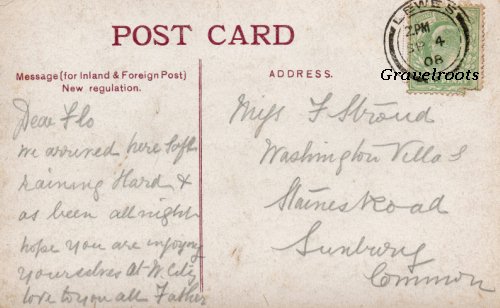 POST CARD
Message (for Inland & Foreign Post)
New regulation.
Dear Flo
we arrived here safe
raining Hard &
as been all night
hope you are injoying
yourselves at W. City
love to you all Father
ADDRESS.
Miss F Stroud
Washington Villas
Staines Road
Sunbury
Common
LEWES
2.PM
SP 4
08
Gravelroots